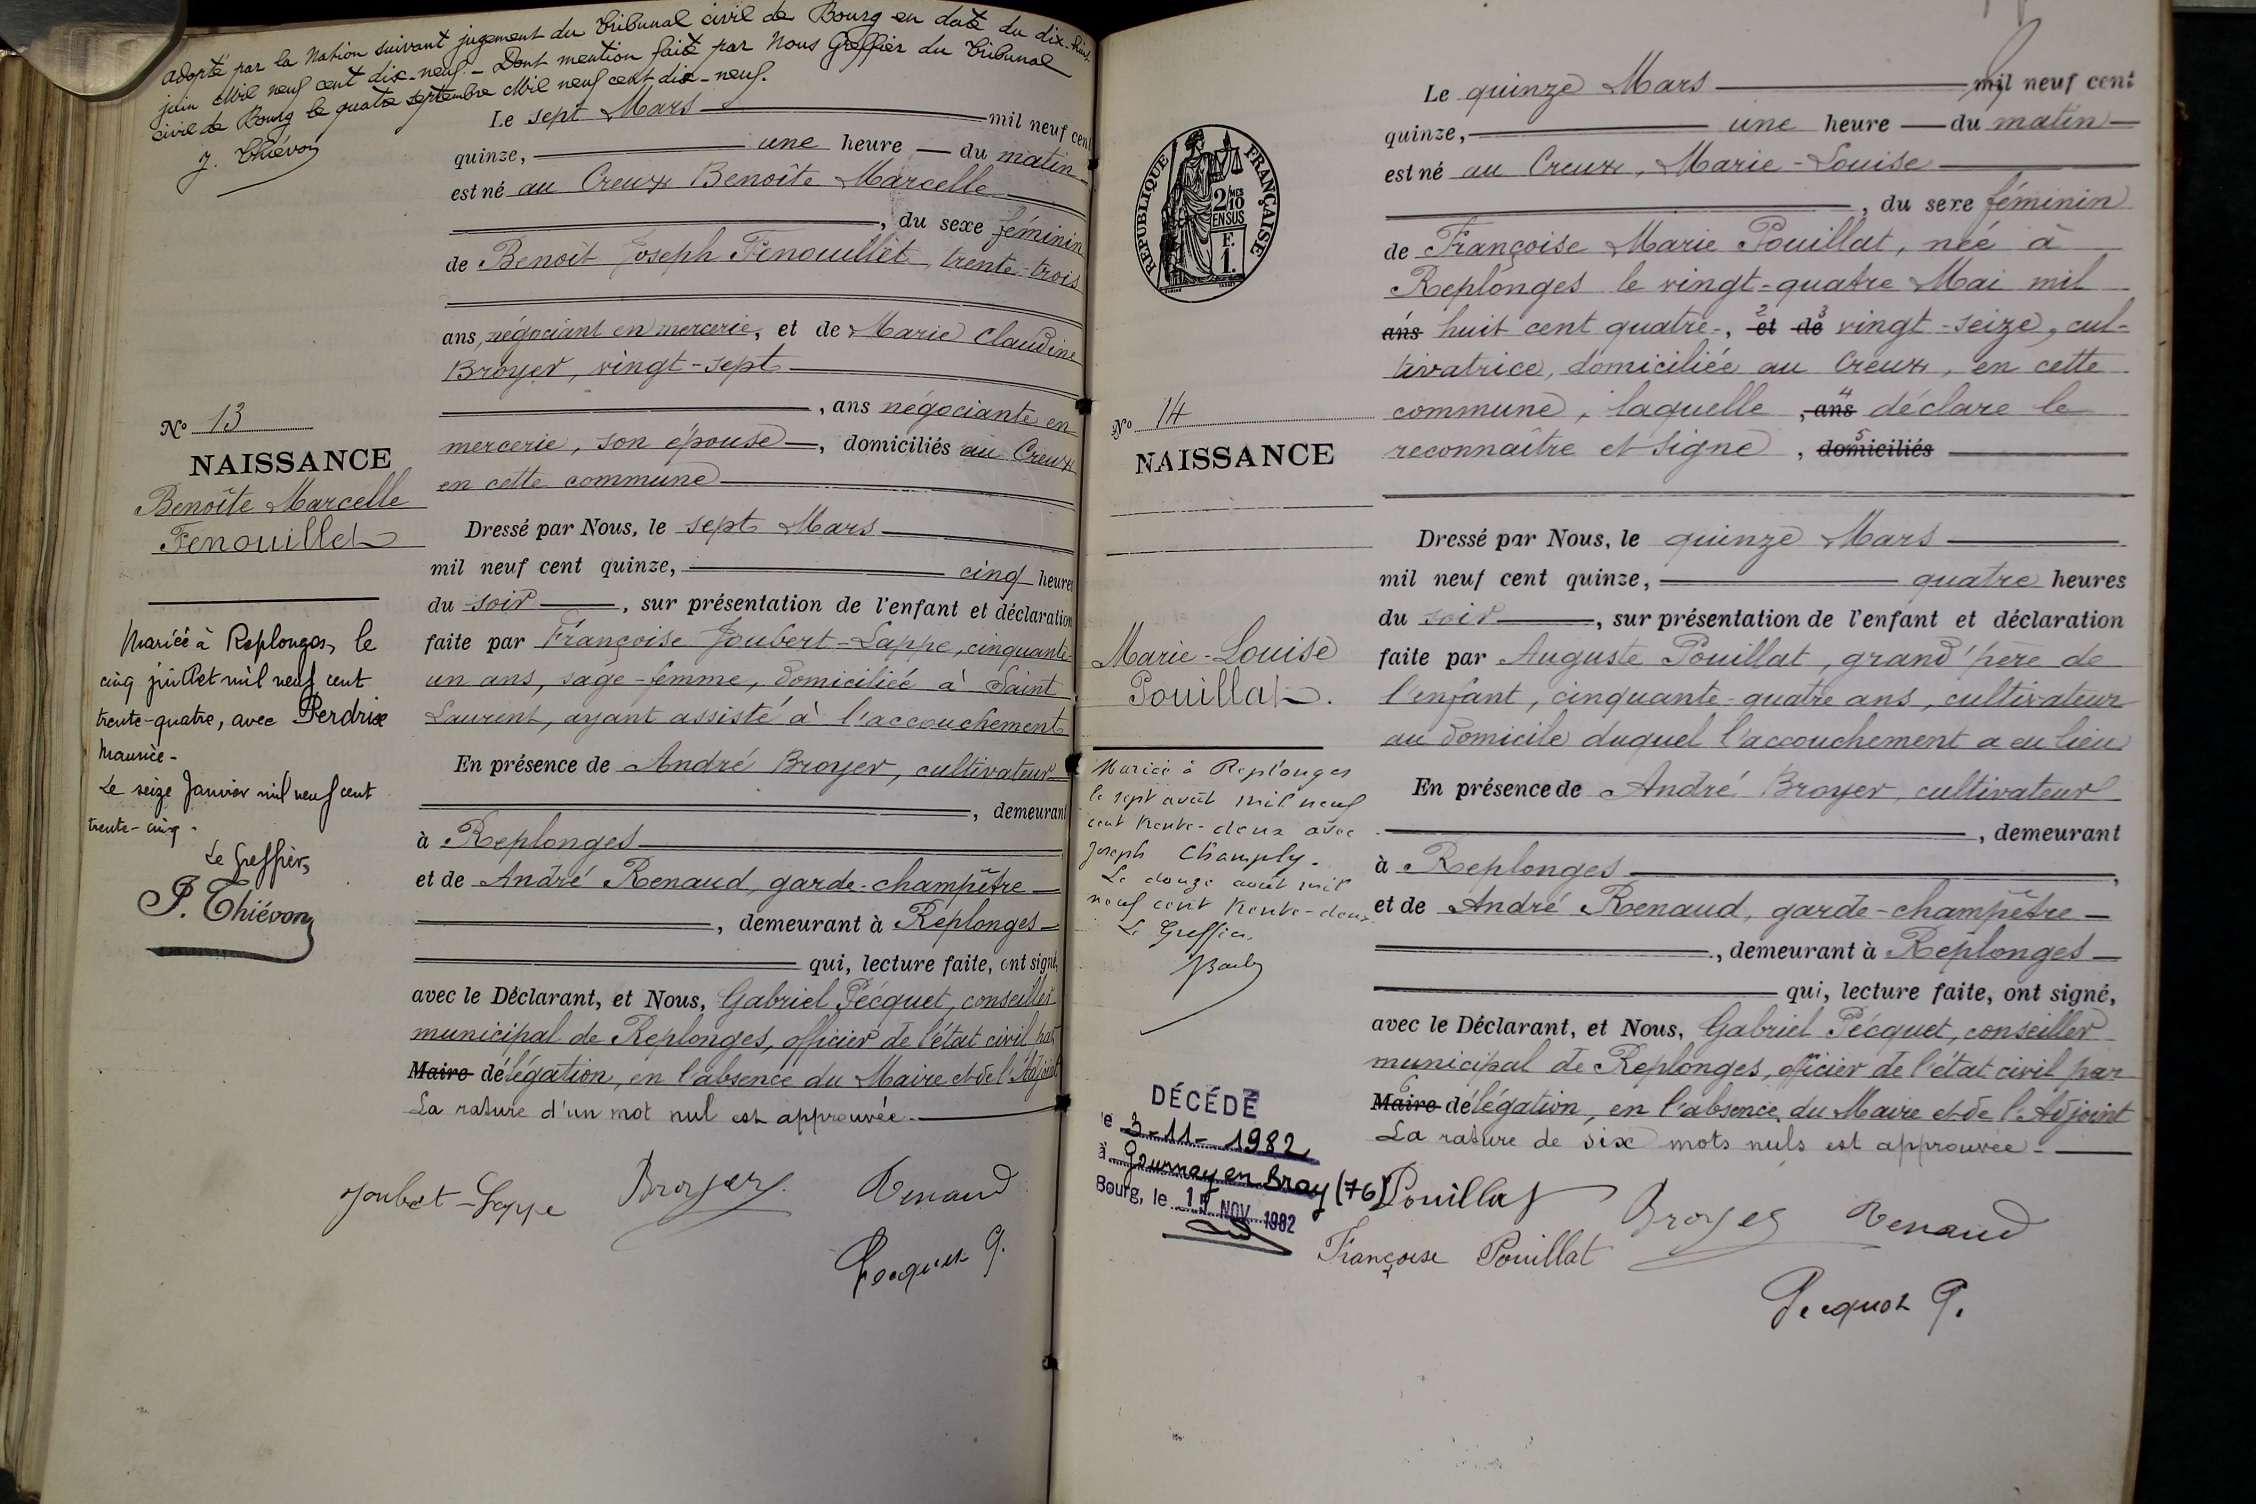 adopté par la Nation suivant jugement du Tribunal civil de Bourg en date du dix-huit
juin Mil neuf cent dix-neuf. - Dont mention faite par Nous Greffier du Tribunal
civil de Bourg le quatre septembre Mil neuf cent dix-neuf.
J. Thiévon
Le sept Mars mil neuf cent
quinze, une heure du matin
est né au Creux Benoîte Marcelle
, du sexe féminin
de Benoît Joseph Fenouillet, trente-trois
ans, négociant en mercerie, et de Marie Claudine
Broyer, vingt-sept
, ans négociante en
mercerie, son épouse, domiciliés au Creux
en cette commune
No 13
NAISSANCE
Benoîte Marcelle
Fenouillet
Dressé par Nous, le sept Mars
mil neuf cent quinze, cinq heures
du soir, sur présentation de l'enfant et déclaration
faite par Françoise Joubert-Lappe, cinquante-
un ans, sage-femme, domiciliée à Saint
Laurent, ayant assisté à l'accouchement
En présence de André Broyer, cultivateur
, demeurant
à Replonges
et de André Renaud, garde-champêtre
, demeurant à Replonges
qui, lecture faite, ont signé,
avec le Déclarant, et Nous, Gabriel Pécquet, conseiller
municipal de Replonges, officier de l'état civil par
Maire délégation, en l'absence du Maire et de l'Adjoint
La rature d'un mot nul est approuvée.
Mariée à Replonges, le
cinq juillet mil neuf cent
trente-quatre, avec Perdrix
Maurice -
Le seize Janvier mil neuf cent
trente-cinq.
Le Greffier,
J. Thiévon
Joubert-Lappe Broyer Renaud
Pecquet G.
RÉPUBLIQUE FRANÇAISE
2/10 MES
EN SUS
F.
1.
Le quinze Mars mil neuf cent
quinze, une heure du matin
est né au Creux, Marie-Louise
, du sexe féminin
de Françoise Marie Pouillat, née à
Replonges le vingt-quatre Mai mil
ans huit cent quatre-, 2 et 3 de vingt-seize, cul-
tivatrice, domiciliée au Creux, en cette
commune, laquelle, 4 ans déclare le
reconnaître et signe, 5 domiciliés
No 14
NAISSANCE
Marie-Louise
Pouillat.
Dressé par Nous, le quinze Mars
mil neuf cent quinze, quatre heures
du soir, sur présentation de l'enfant et déclaration
faite par Auguste Pouillat, grand'père de
l'enfant, cinquante-quatre ans, cultivateur
au domicile duquel l'accouchement a eu lieu
En présence de André Broyer, cultivateur
, demeurant
à Replonges,
et de André Renaud, garde-champêtre
, demeurant à Replonges
qui, lecture faite, ont signé,
avec le Déclarant, et Nous, Gabriel Pécquet, conseiller
municipal de Replonges, officier de l'état civil par
6 Maire délégation, en l'absence du Maire et de l'Adjoint
La rature de six mots nuls est approuvée.
Mariée à Replonges
le sept août mil neuf
cent trente-deux avec
Joseph Champly.
Le douze août mil
neuf cent trente-deux
Le Greffier.
DÉCÉDÉ
le 3-11-1982
à Gournay en Bray (76)
Bourg, le 15 NOV. 1982
Pouillat Broyer Renaud
Françoise Pouillat
Pecquet G.